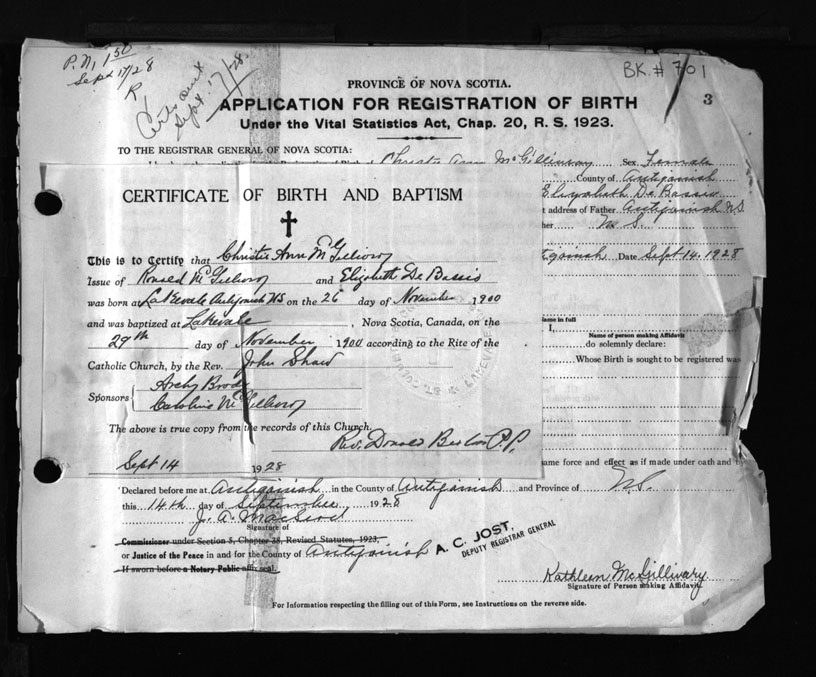 P.N. 1 50
Sept 17/28
R
Sept. 17/28.
BK. # 701
3
PROVINCE OF NOVA SCOTIA.
APPLICATION FOR REGISTRATION OF BIRTH
Under the Vital Statistics Act, Chap. 20, R. S. 1923.
TO THE REGISTRAR GENERAL OF NOVA SCOTIA:
Christie Ann McGillivray Sex Female
County of Antigonish
Elizabeth De Bassio
t address of Father Antigonish N.S.
her N. S.
tigonish Date Sept 14. 1928
CERTIFICATE OF BIRTH AND BAPTISM
This is to Certify that Christie Ann McGillivray
Issue of Ronald McGillivray and Elizabeth De Bassio
was born at Lakevale Antigonish NS on the 26 day of November 1900
and was baptized at Lakevale, Nova Scotia, Canada, on the
29th day of November 1900 according to the Rite of the
Catholic Church, by the Rev. John Shaw
Sponsors Archy Brode
Caroline McGillivray
The above is true copy from the records of this Church.
Rev. Donald P.P.
Sept 14 1928
ame in full
I,
Name of person making Affidavit
do solemnly declare:
Whose Birth is sought to be registered was
ame force and effect as if made under oath and by
Declared before me at Antigonish in the County of Antigonish and Province of N.S.
this 14th day of September 1928
J. A. MacLeod
Signature of
Commissioner under Section 5, Chapter 38, Revised Statutes, 1923,
or Justice of the Peace in and for the County of Antigonish
If sworn before a Notary Public affix seal.
A. C. JOST,
DEPUTY REGISTRAR GENERAL
Kathleen McGillivary
Signature of Person making Affidavit.
For Information respecting the filling out of this Form, see Instructions on the reverse side.